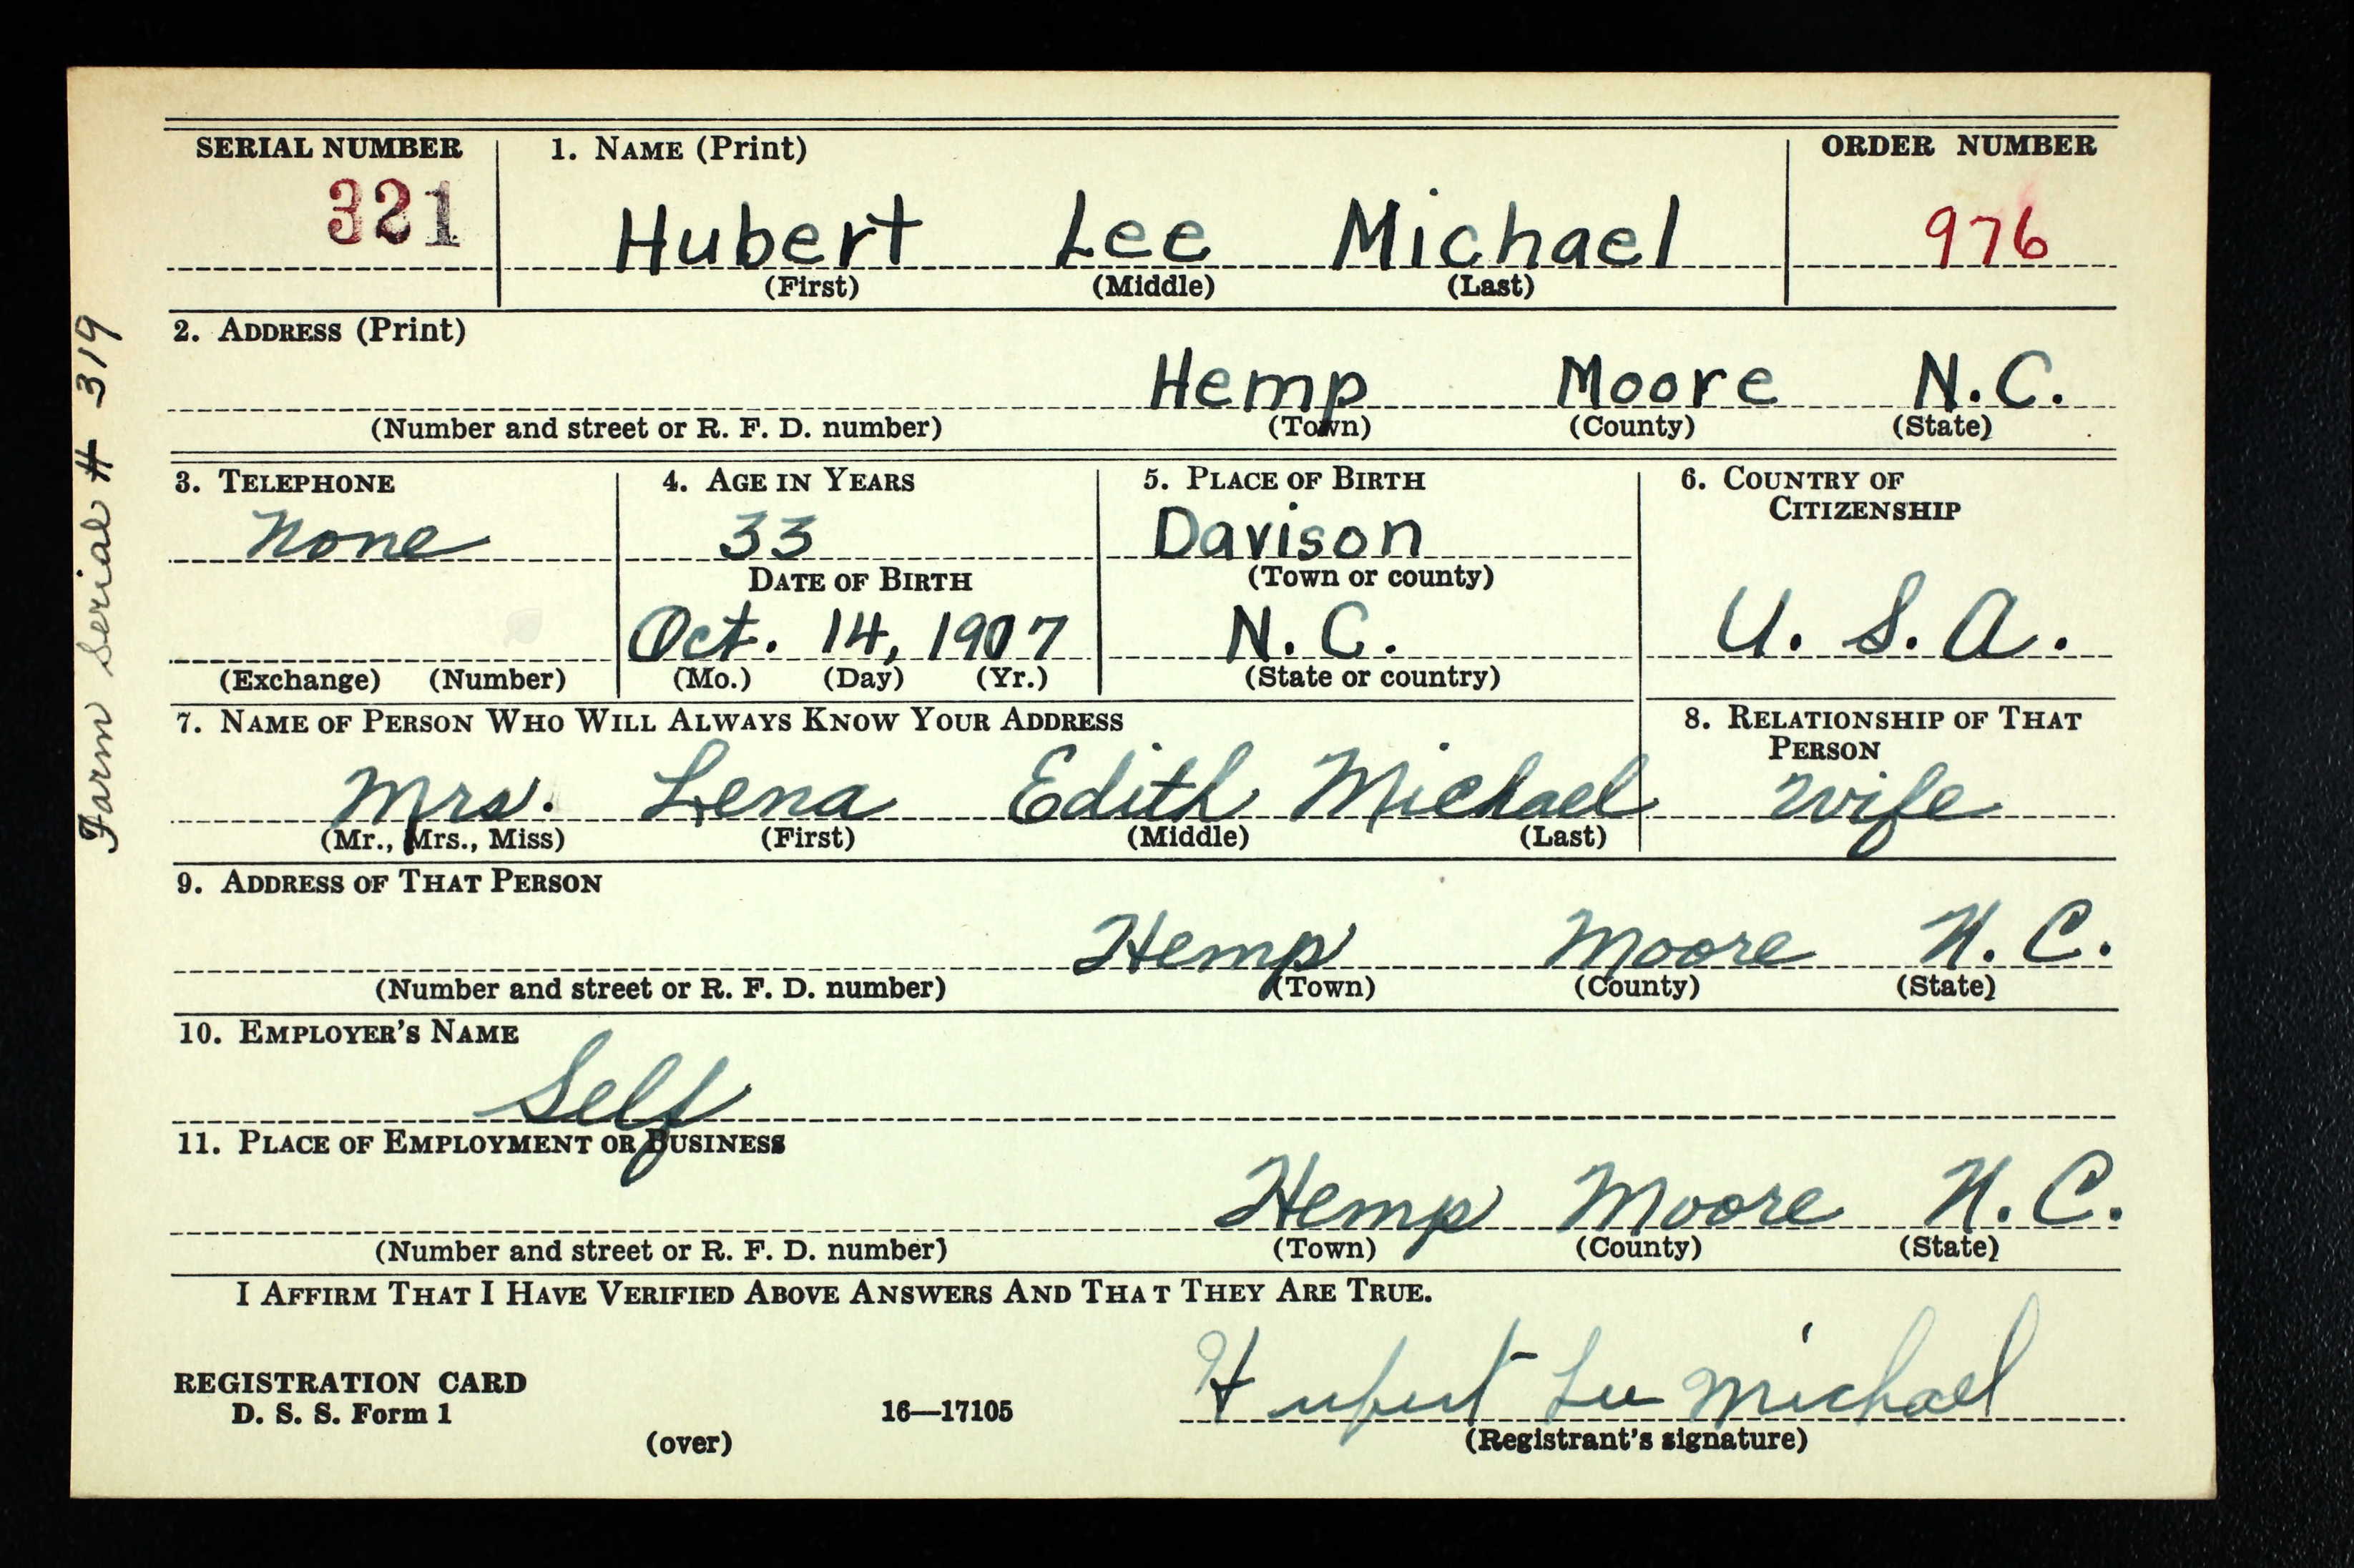 SERIAL NUMBER 1. NAME (Print) ORDER NUMBER
321 Hubert Lee Michael 976
(First) (Middle) (Last)
2. ADDRESS (Print)
Hemp Moore N.C.
(Number and street or R. F. D. number) (Town) (County) (State)
3. TELEPHONE 4. AGE IN YEARS 5. PLACE OF BIRTH 6. COUNTRY OF
CITIZENSHIP
None 33 Davison
DATE OF BIRTH (Town or county)
Oct. 14, 1907 N.C. U. S. A.
(Exchange) (Number) (Mo.) (Day) (Yr.) (State or country)
7. NAME OF PERSON WHO WILL ALWAYS KNOW YOUR ADDRESS 8. RELATIONSHIP OF THAT
PERSON
Mrs. Lena Edith Michael wife
(Mr., Mrs., Miss) (First) (Middle) (Last)
9. ADDRESS OF THAT PERSON
Hemp Moore N. C.
(Number and street or R. F. D. number) (Town) (County) (State)
10. EMPLOYER'S NAME
Self
11. PLACE OF EMPLOYMENT OR BUSINESS
Hemp Moore N. C.
(Number and street or R. F. D. number) (Town) (County) (State)
I AFFIRM THAT I HAVE VERIFIED ABOVE ANSWERS AND THAT THEY ARE TRUE.
Hubert Lee Michael
REGISTRATION CARD
D. S. S. Form 1 16—17105
(over) (Registrant's signature)
Farm Serial # 319